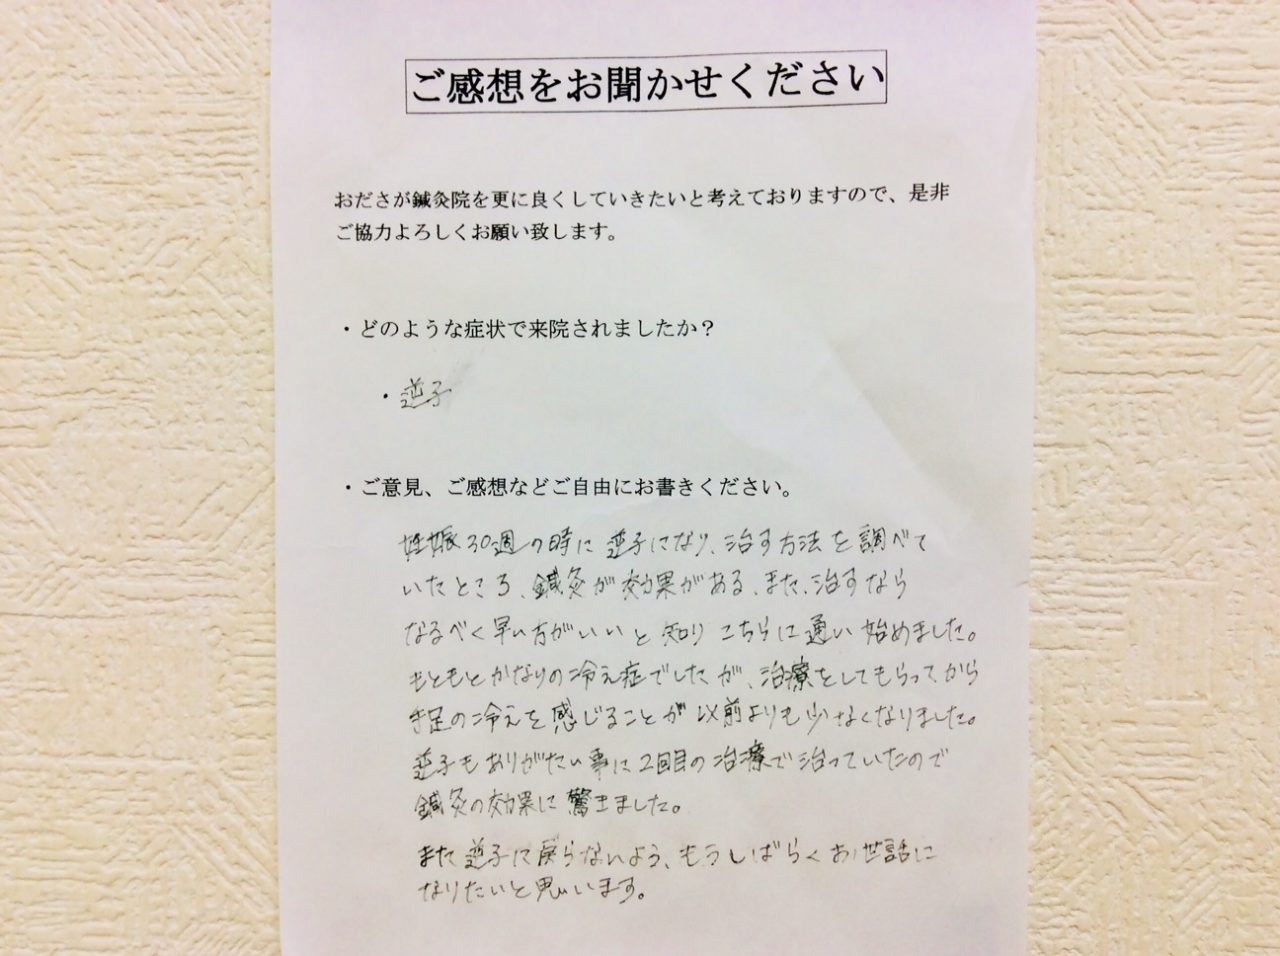 ご感想をお聞かせください
おださが鍼灸院を更に良くしていきたいと考えておりますので、是非
ご協力よろしくお願い致します。
・どのような症状で来院されましたか？
・逆子
・ご意見、ご感想などご自由にお書きください。
妊娠30週の時に逆子になり、治す方法を調べて
いたところ、鍼灸が効果がある、また、治すなら
なるべく早い方がいいと知りこちらに通い始めました。
もともとかなりの冷え症でしたが、治療をしてもらってから
手足の冷えを感じることが以前よりも少なくなりました。
逆子もありがたい事に2回目の治療で治っていたので
鍼灸の効果に驚きました。
また逆子に戻らないよう、もうしばらくお世話に
なりたいと思います。